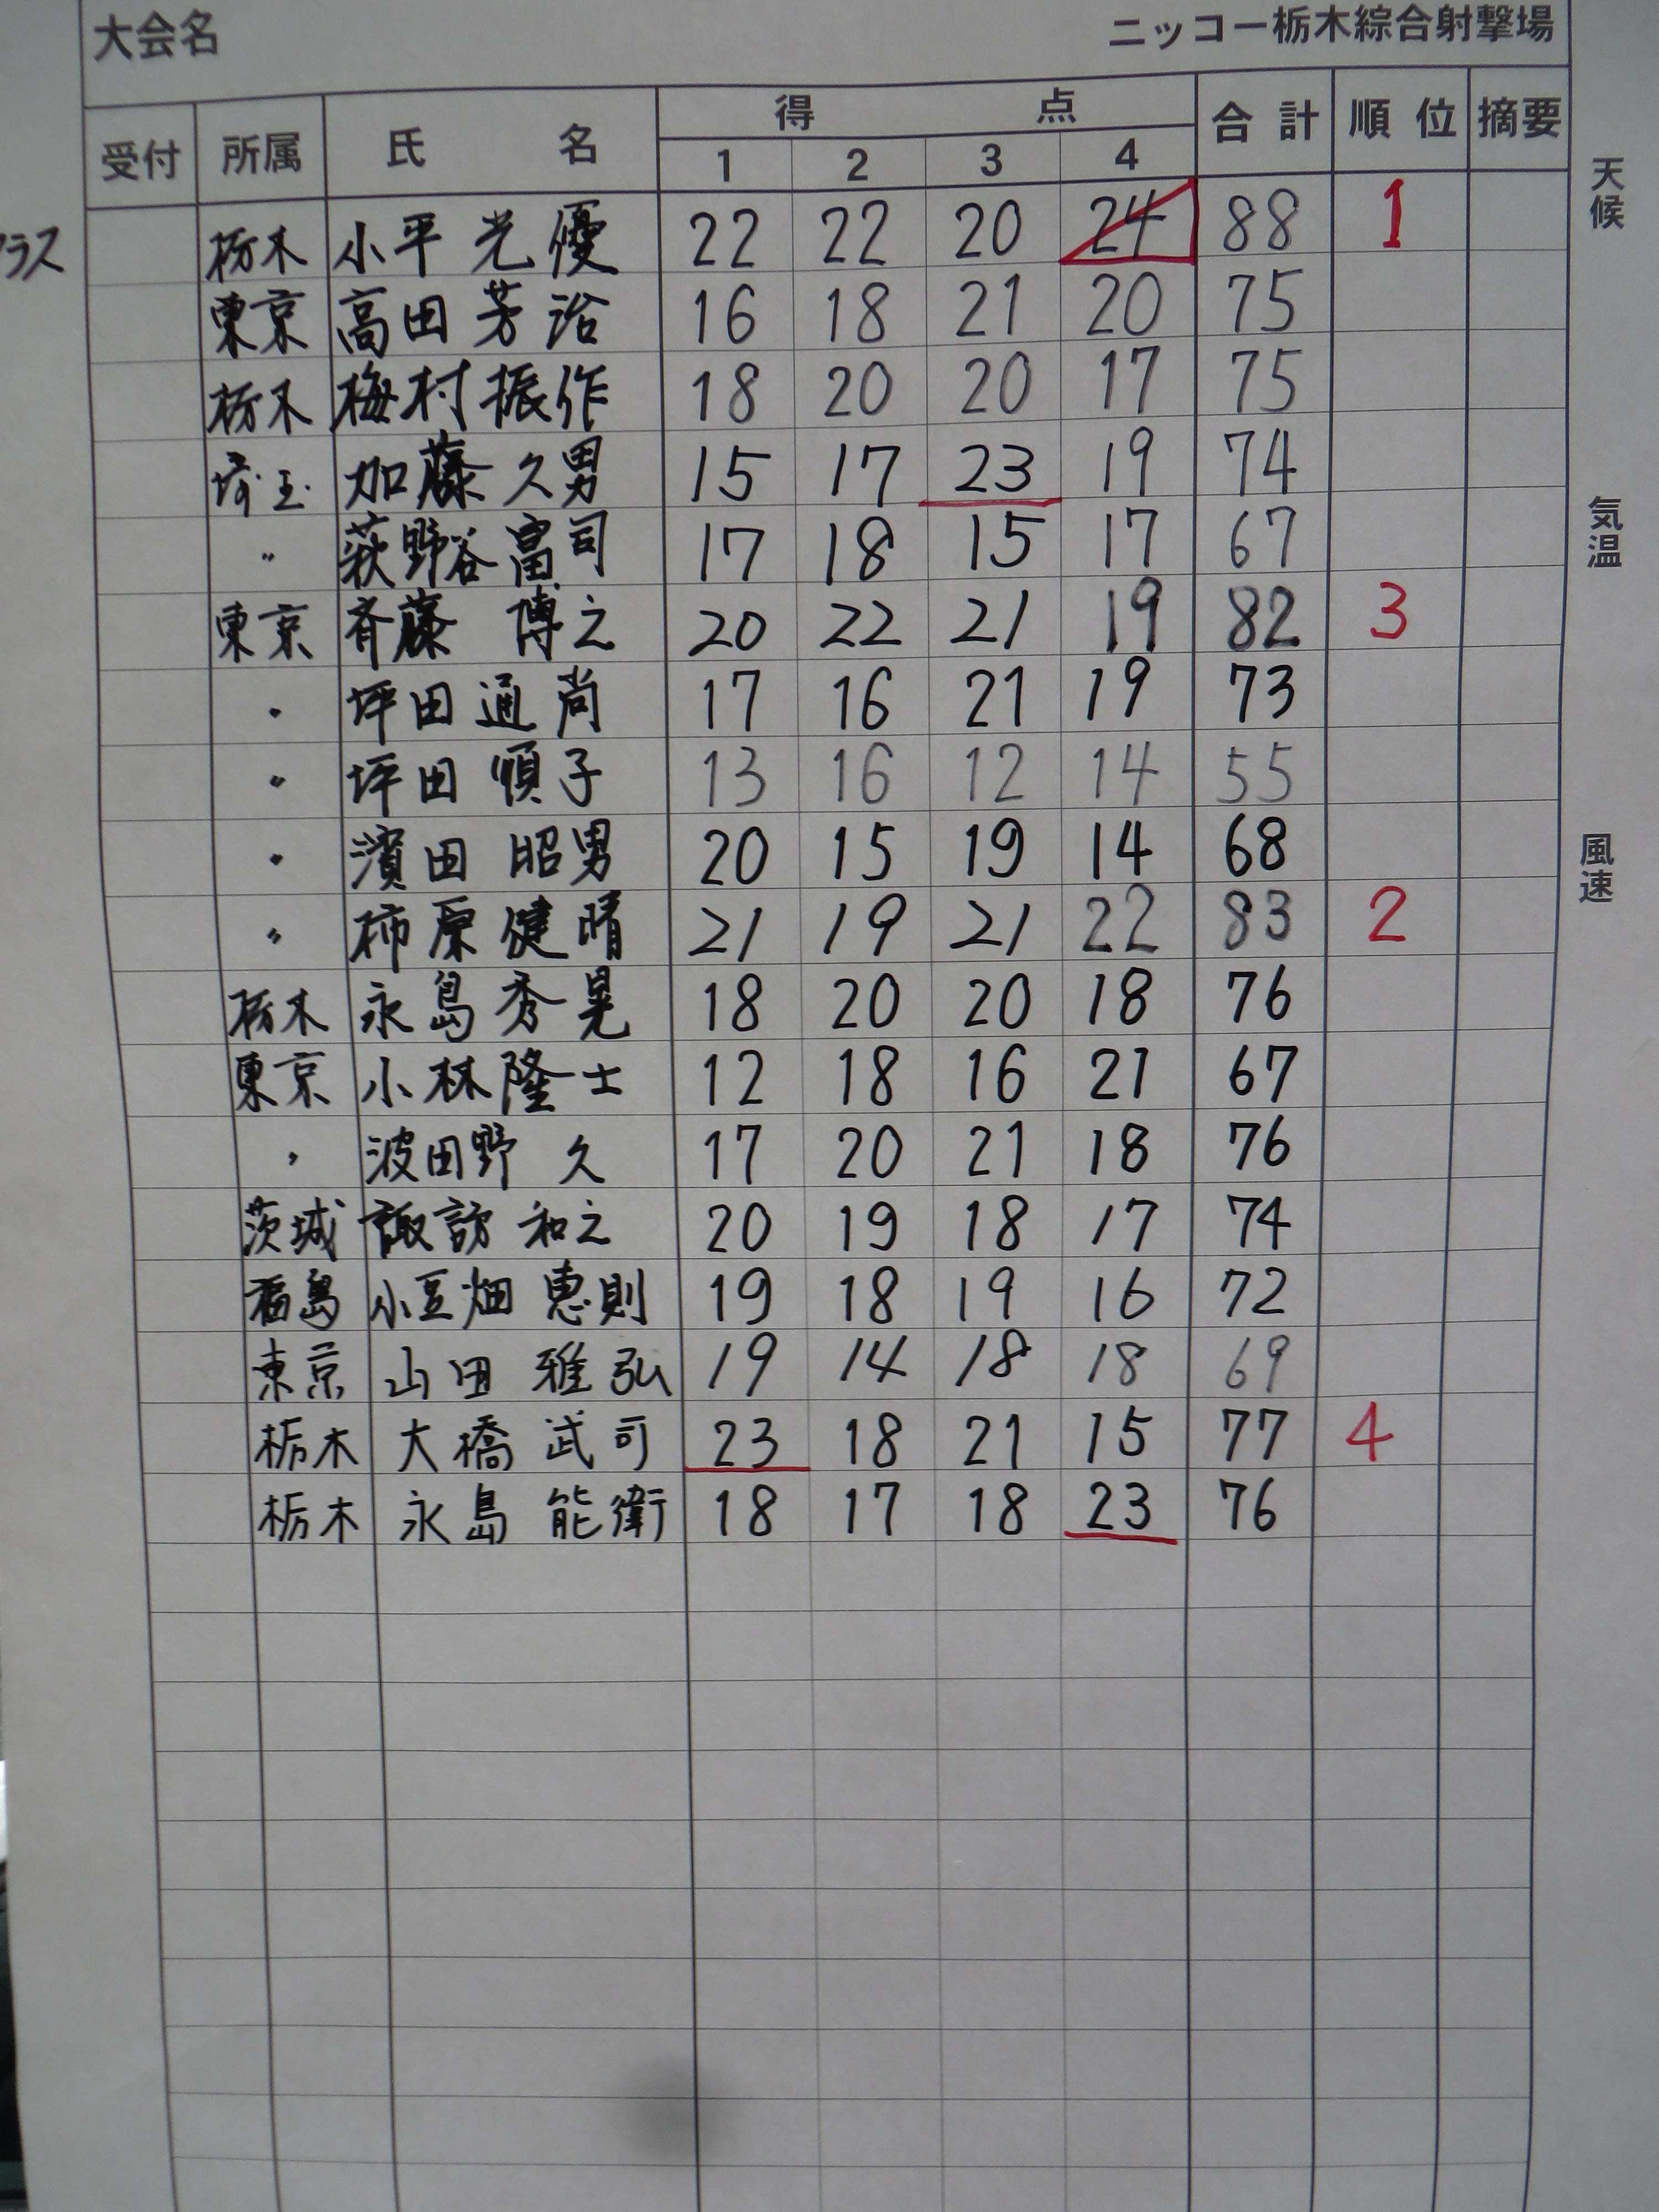 大会名 ニッコー栃木綜合射撃場
受付 所属 氏名 得点 合計 順位 摘要
1 2 3 4
天候
気温
風速
ラス
栃木 小平光優 22 22 20 24 88 1
東京 高田芳浴 16 18 21 20 75
栃木 梅村振作 18 20 20 17 75
埼玉 加藤久男 15 17 23 19 74
〃 萩野谷富司 17 18 15 17 67
東京 斉藤博之 20 22 21 19 82 3
〃 坪田通尚 17 16 21 19 73
〃 坪田順子 13 16 12 14 55
〃 濱田昭男 20 15 19 14 68
〃 柿原健晴 21 19 21 22 83 2
栃木 永島秀晃 18 20 20 18 76
東京 小林隆士 12 18 16 21 67
〃 波田野久 17 20 21 18 76
茨城 諏訪和之 20 19 18 17 74
福島 小豆畑恵則 19 18 19 16 72
東京 山田雅弘 19 14 18 18 69
栃木 大橋武司 23 18 21 15 77 4
栃木 永島能衛 18 17 18 23 76